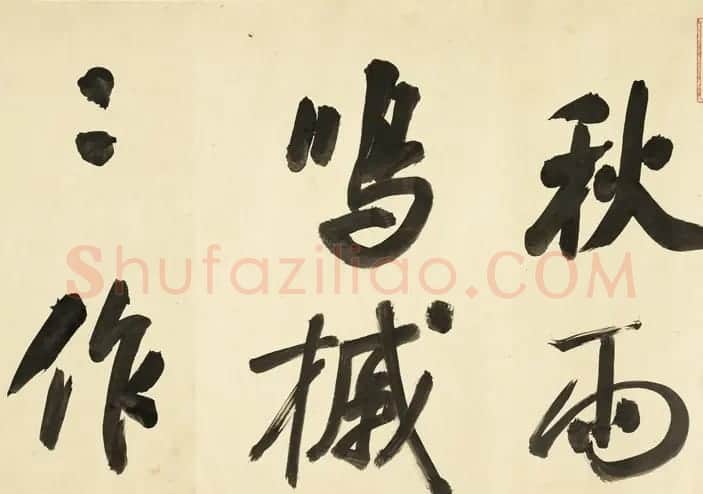 秋雨
鳴槭
〻作
Shufaziliao.COM